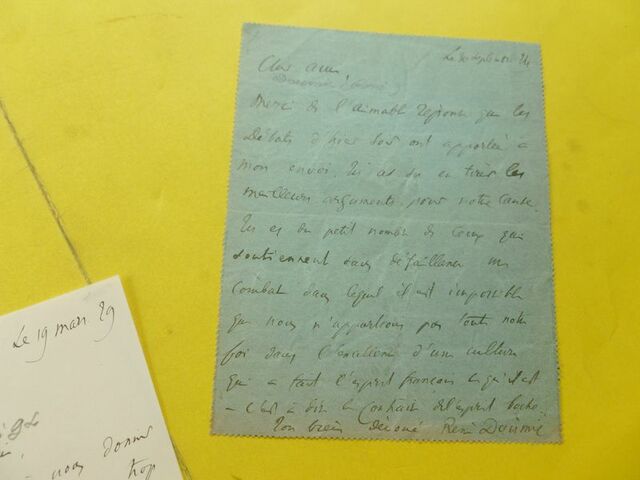 Le 30 septembre 24
Cher ami,
Merci de l'aimable réponse que les
Débats d'hier soir ont apportée à
mon envoi. Tu as su en tirer les
meilleurs arguments pour notre cause.
Tu es du petit nombre de ceux qui
soutiennent sans défaillance un
combat dans lequel il est impossible
que nous n'apportions pas toute notre
foi dans l'excellence d'une culture
qui a fait l'esprit français ce qu'il est
– c'est à dire le contraire de l'esprit boche.
Ton bien dévoué René Doumic
Le 19 mars 29
nous donner
trop